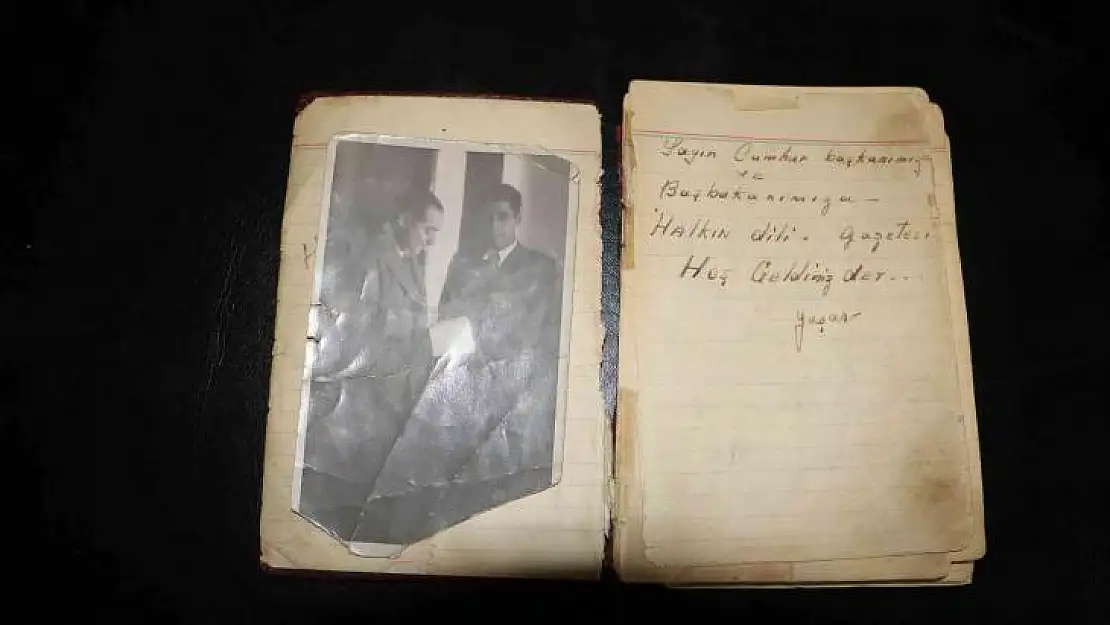 Sayın Cumhur başkanımız
ve
Başbakanımıza —
Halkın dili. gazetesi
Hoş Geldiniz der...
Yaşar